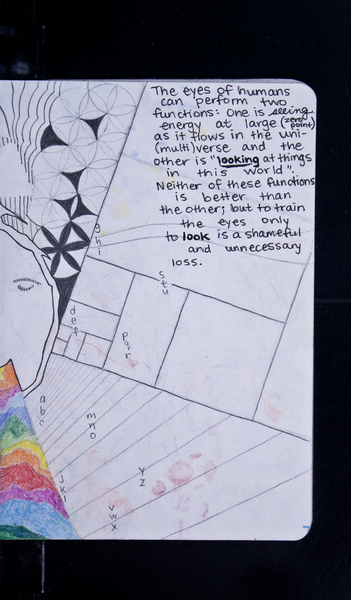 The eyes of humans
can perform two
functions: One is seeing
energy at large (zero point)
as it flows in the uni-
(multi)verse and the
other is "looking at things
in this world".
Neither of these functions
is better than
the other; but to train
the eyes only
to look is a shameful
and unnecessary
loss.
g
h
i
s
t
u
d
e
f
p
q
r
a
b
c
m
n
o
j
k
l
y
z
v
w
x